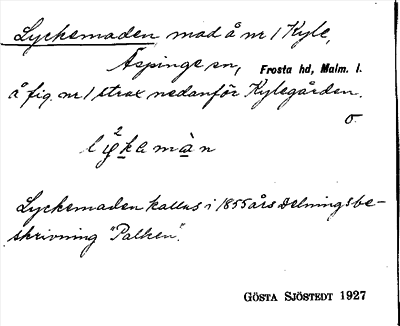 Lyckemaden, mad å nr 1 Kyle,
Äspinge sn, Frosta hd, Malm. l.
å fig. nr 1 strax nedanför Kylegården.
O.
Lyckemaden kallas i 1855 års delningsbe-
skrivning "Palken".
GÖSTA SJÖSTEDT 1927